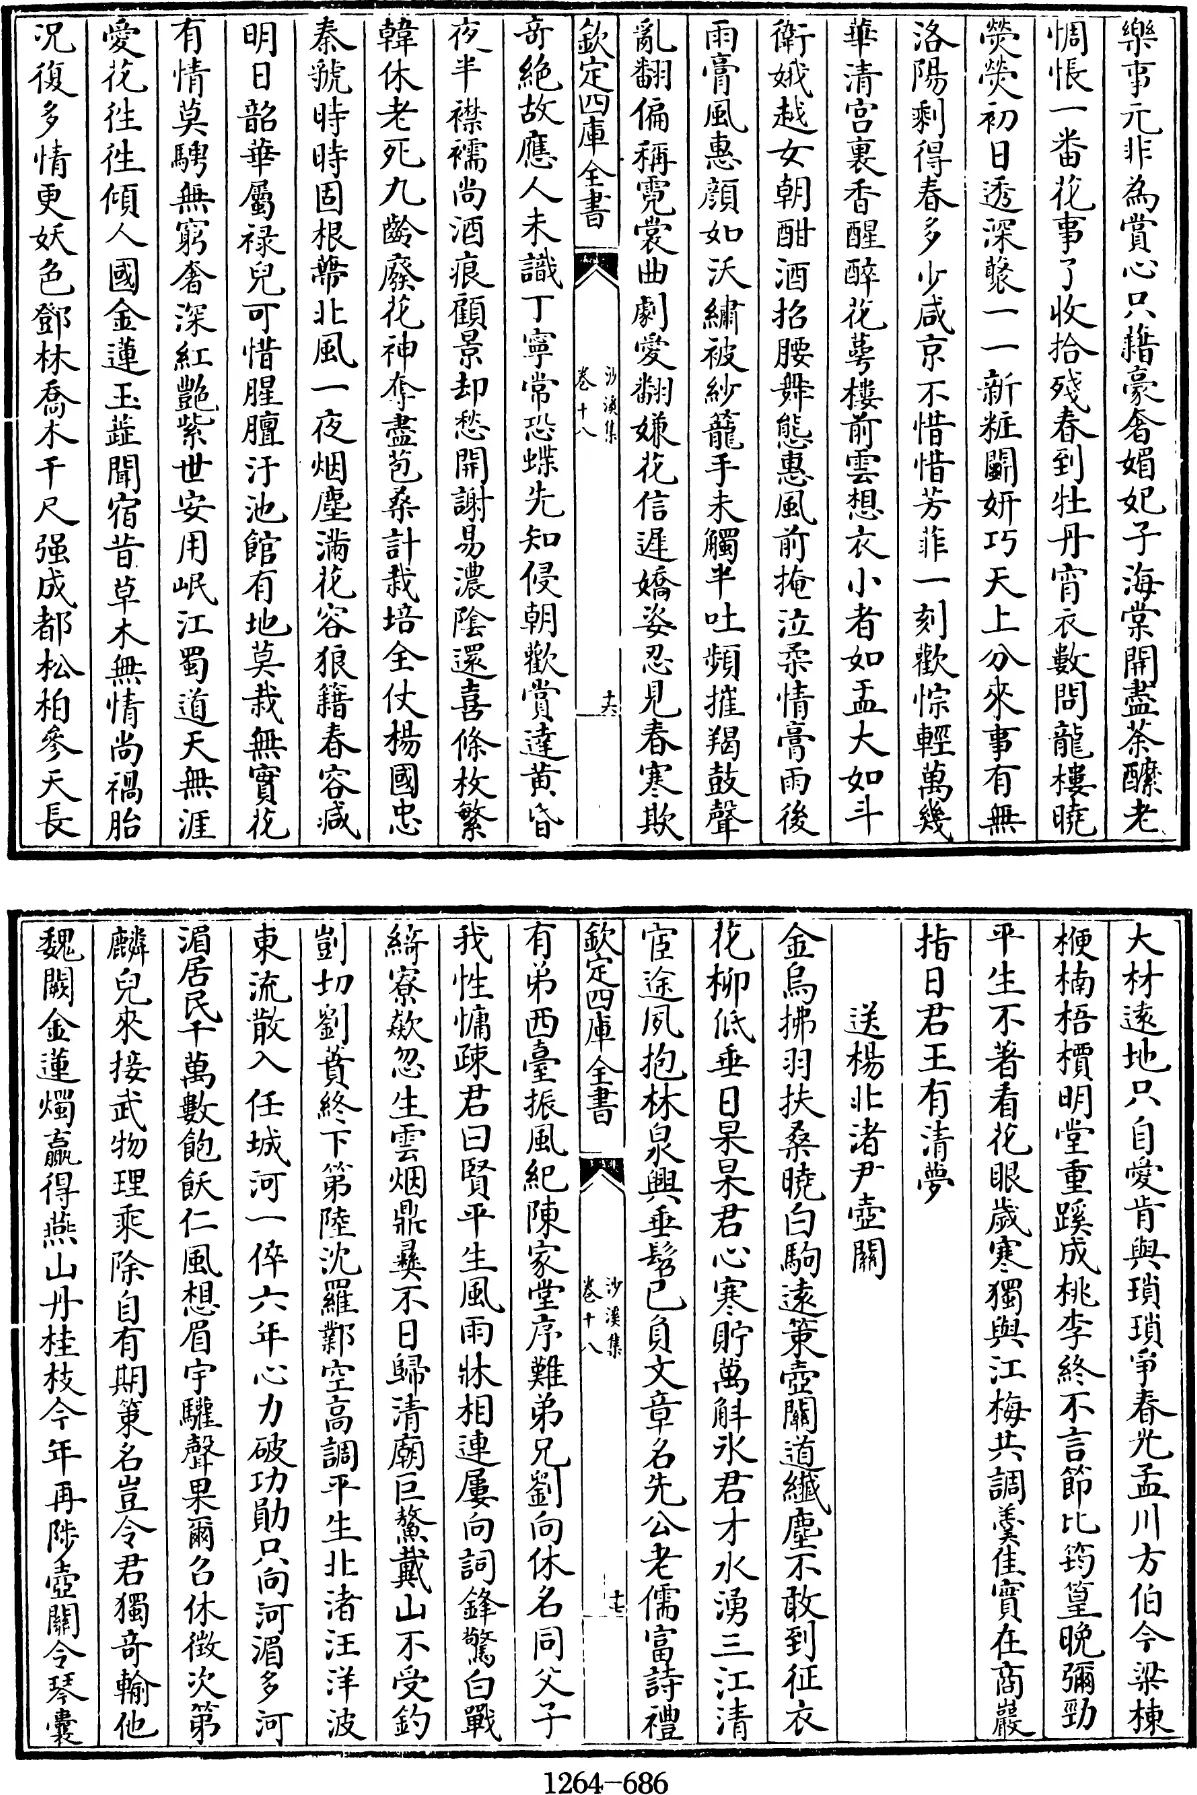 樂事元非為賞心只藉豪奢媚妃子海棠開盡荼醾老
惆悵一番花事了收拾殘春到牡丹宵衣數問龍樓曉
熒熒初日透深蘂一一新粧鬭妍巧天上分來事有無
洛陽剩得春多少咸京不惜惜芳菲一刻歡悰輕萬幾
華清宮裏香醒醉花萼樓前雲想衣小者如盂大如斗
衛娥越女朝酣酒招腰舞態惠風前掩泣柔情膏雨後
雨膏風惠顏如沃繡被紗籠手未觸半吐頻摧羯鼓聲
亂翻偏稱霓裳曲劇愛翻嫌花信遲嬌姿忍見春寒欺
欽定四庫全書
沙溪集
卷十八
十六
奇絕故應人未識丁寧常恐蝶先知侵朝歡賞達黃昏
夜半襟襦尚酒痕顧景却愁開謝易濃陰還喜條枚繁
韓休老死九齡廢花神奪盡苞桑計栽培全仗楊國忠
秦虢時時固根蔕北風一夜烟塵滿花容狼籍春容减
明日韶華屬禄兒可惜腥膻汙池館有地莫栽無實花
有情莫騁無窮奢深紅艶紫世安用岷江蜀道天無涯
愛花往往傾人國金蓮玉蘂聞宿昔草木無情尚禍胎
況復多情更妖色鄧林喬木千尺强成都松柏參天長
大材遠地只自愛肯與瑣瑣爭春光孟川方伯今梁棟
楩楠梧檟明堂重蹊成桃李終不言節比筠篁晚彌勁
平生不著看花眼歲寒獨與江梅共調羹佳實在商巖
指日君王有清夢
送楊北渚尹壺關
金烏拂羽扶桑曉白駒遠策壺關道纖塵不敢到征衣
花柳低垂日杲杲君心寒貯萬斛氷君才水湧三江清
宦途夙抱林泉興垂髫已負文章名先公老儒富詩禮
欽定四庫全書
沙溪集
卷十八
十七
有弟西臺振風紀陳家堂序難弟兄劉向休名同父子
我性慵疎君曰賢平生風雨牀相連屢向詞鋒驚白戰
綺寮欻忽生雲烟鼎彞不日歸清廟巨鰲戴山不受釣
剴切劉蕡終下第陸沈羅鄴空高調平生北渚汪洋波
東流散入任城河一倅六年心力破功勛只向河湄多河
湄居民千萬數飽飫仁風想眉宇驩聲果爾召休徵次第
麟兒來接武物理乘除自有期策名豈令君獨奇輸他
魏闕金蓮燭贏得燕山丹桂枝今年再陟壺關令琴囊
1264-686